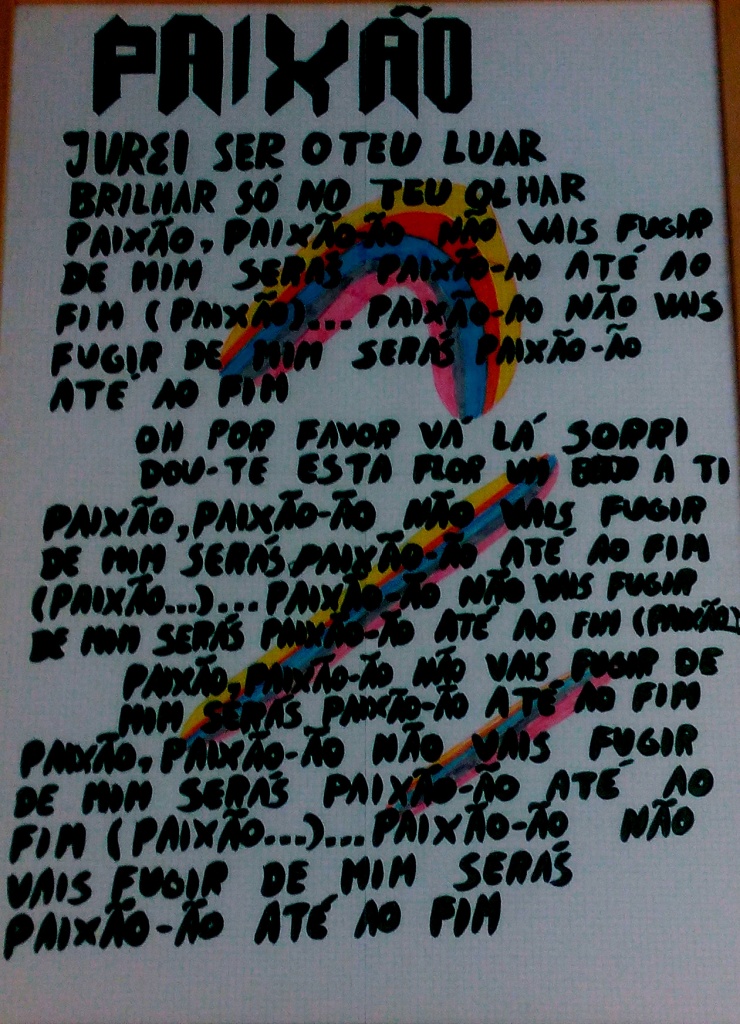 PAIXÃO
JUREI SER O TEU LUAR
BRILHAR SÓ NO TEU OLHAR
PAIXÃO, PAIXÃO-ÃO NÃO VAIS FUGIR
DE MIM SERÁS PAIXÃO-AO ATÉ AO
FIM (PAIXÃO)... PAIXÃO-AO NÃO VAIS
FUGIR DE MIM SERÁS PAIXÃO-ÃO
ATÉ AO FIM
OH POR FAVOR VÁ LÁ SORRI
DOU-TE ESTA FLOR UM A TI
PAIXÃO, PAIXÃO-ÃO NÃO VAIS FUGIR
DE MIM SERÁS PAIXÃO-ÃO ATÉ AO FIM
(PAIXÃO...)... PAIXÃO-ÃO NÃO VAIS FUGIR
DE MIM SERÁS PAIXÃO-ÃO ATÉ AO FIM (PAIXÃO)
PAIXÃO, PAIXÃO-ÃO NÃO VAIS FUGIR DE
MIM SERÁS PAIXÃO-ÃO ATÉ AO FIM
PAIXÃO, PAIXÃO-ÃO NÃO VAIS FUGIR
DE MIM SERÁS PAIXÃO-ÃO ATÉ AO
FIM (PAIXÃO...)... PAIXÃO-ÃO NÃO
VAIS FUGIR DE MIM SERÁS
PAIXÃO-ÃO ATÉ AO FIM